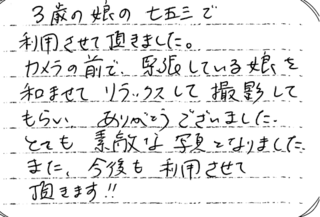 3歳の娘の七五三で
利用させて頂きました。
カメラの前で、緊張している娘を
和ませてリラックスして撮影して
もらい、ありがとうございました。
とても素敵な写真となりました。
また、今後も利用させて
頂きます!!